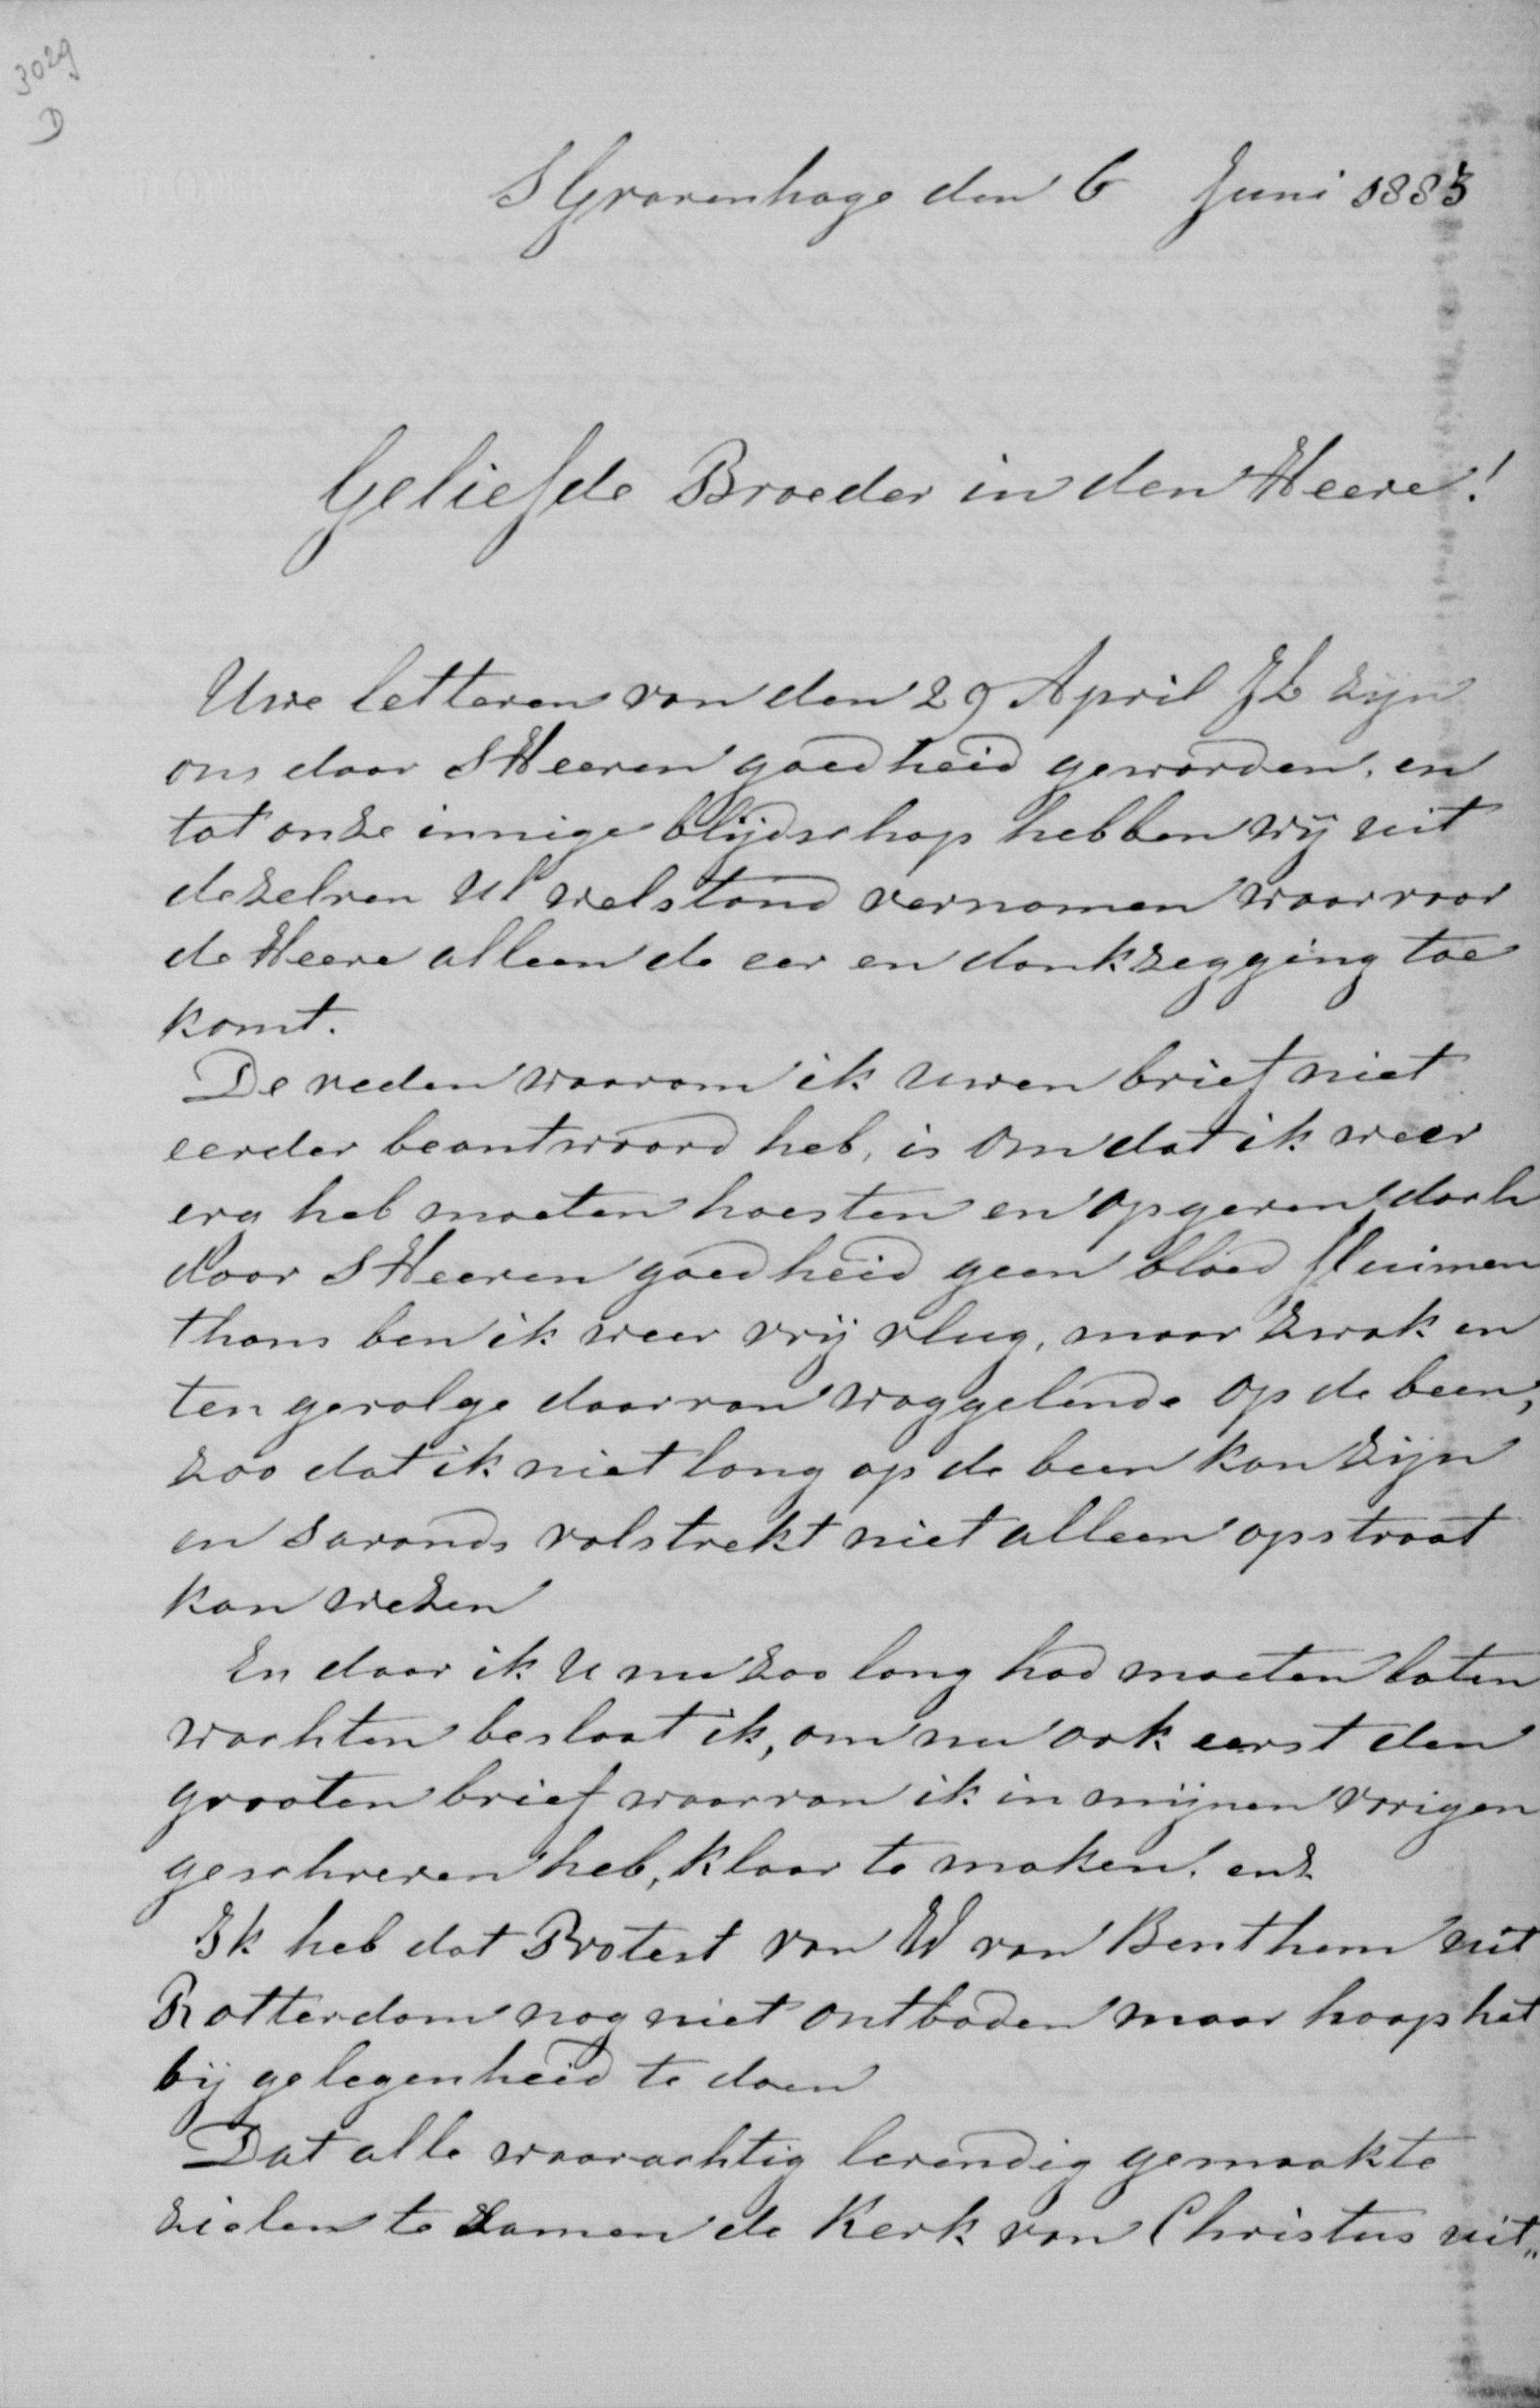 3029
D
SGravenhage den 6 Juni 1883
Geliefde Broeder in den Heere!
Uwe letteren van den 29 April Jl zijn
ons door SHeeren goedheid geworden, en
tot onze innige blijdschap hebben wij uit
dezelven Ul welstand vernomen waarvoor
de Heere alleen de eer en dankzegging toe
komt.
De reden waarom ik uwen brief niet
eerder beantwoord heb, is omdat ik weer
erg heb moeten hoesten en opgeven doch
door SHeeren goedheid geen bloed fluimen
thans ben ik weer vrij vlug, maar zwak en
ten gevolge daarvan waggelende op de been,
zoo dat ik niet lang op de been kan zijn
en savonds volstrekt niet alleen op straat
kan wezen
En daar ik U nu zoo lang had moeten laten
wachten besloot ik, om nu ook eerst den
grooten brief waarvan ik in mijnen vorigen
geschreven heb, klaar te maken. enz
Ik heb dat Protest van W van Benthem uit
Rotterdam nog niet ontboden maar hoop het
bij gelegenheid te doen
Dat alle waarachtig levendig gemaakte
zielen te zamen de Kerk van Christus uit„